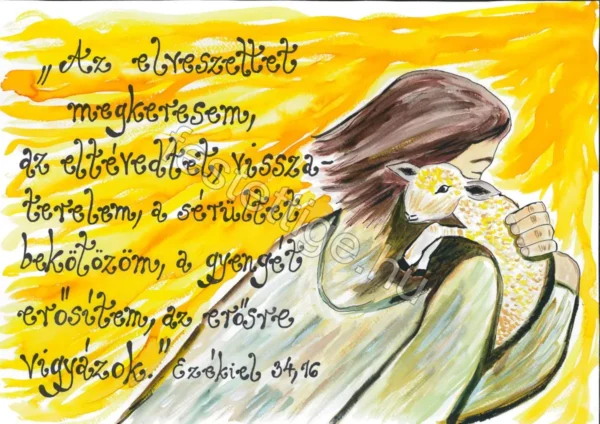 „Az elveszettet
megkeresem,
az eltévedtet, vissza-
terelem, a sérültet
bekötözöm, a gyengét
erősítem, az erősre
vigyázok." Ezékiel 34,16
festettige.hu